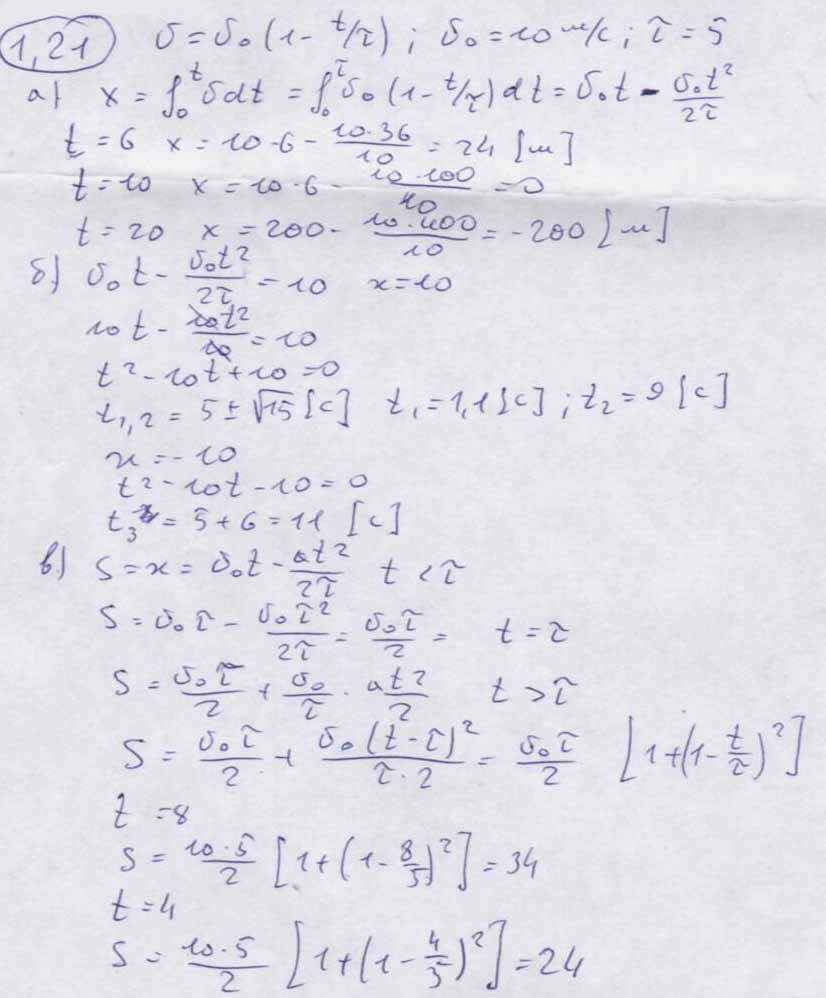 1,21 υ = υ₀ (1 - t/τ) ; υ₀ = 10 м/с ; τ = 5
а) x = ∫₀ᵗ υdt = ∫₀^τ υ₀ (1 - t/τ) dt = υ₀t - υ₀t²/2τ
t = 6 x = 10·6 - 10·36/10 = 24 [м]
t = 10 x = 10·6 - 10·100/10 = 0
t = 20 x = 200 - 10·400/10 = -200 [м]
б) υ₀t - υ₀t²/2τ = 10 x = 10
10t - 10t²/10 = 10
t² - 10t + 10 = 0
t₁,₂ = 5 ± √15 [с] t₁ = 1,1 [с] ; t₂ = 9 [с]
x = -10
t² - 10t - 10 = 0
t₃ = 5 + 6 = 11 [с]
в) S = x = υ₀t - at²/2τ t < τ
S = υ₀τ - υ₀τ²/2τ = υ₀τ/2 = t = τ
S = υ₀τ/2 + υ₀/τ · at²/2 t > τ
S = υ₀τ/2 + υ₀(t - τ)²/τ·2 = υ₀τ/2 [1 + (1 - t/τ)²]
t = 8
S = 10·5/2 [1 + (1 - 8/5)²] = 34
t = 4
S = 10·5/2 [1 + (1 - 4/5)²] = 24